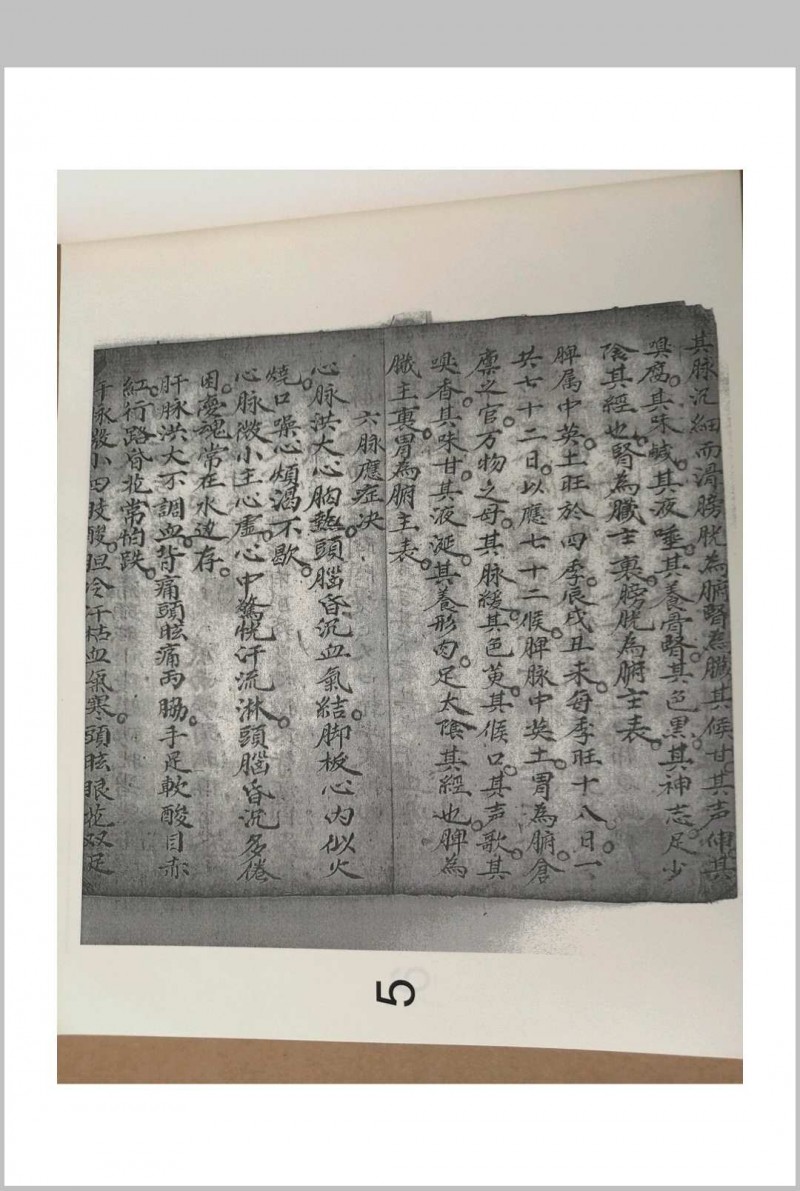 其脉沉細而滑膀胱為腑腎為臟其候甘其声伸其
嗅腐其味醎其液唾其養骨腎其色黒其神志足少
陰其經也腎為臟主裏膀胱為腑主表
脾属中英土旺於四季辰戌丑未每季旺十八日一
共七十二日以應七十二候脾脉中英土胃為腑倉
廪之官万物之母其脉緩其色黄其候口其声歌其
嗅香其味甘其液涎其養形肉足太陰其經也脾為
臟主裏胃為腑主表
六脉應症决
心脉洪大心胸熱頭腦昏沉血氣結脚板心内似火
燒口噪心煩渴不歇
心脉微小主心虛心中驚恍汗流淋頭腦昏沉多倦
困憂魂常在水边存
肝脉洪大不調血背痛頭眩痛两脇手足軟酸目赤
紅行路昏花常怕跌
肝脉微小四肢酸胆冷汗枯血氣寒頭眩眼花双足
5